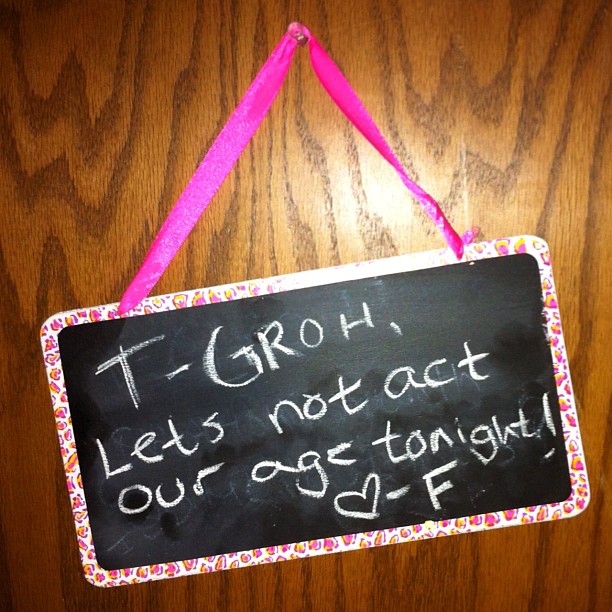 T-GROH,
Lets not act
our age tonight!
♡-F